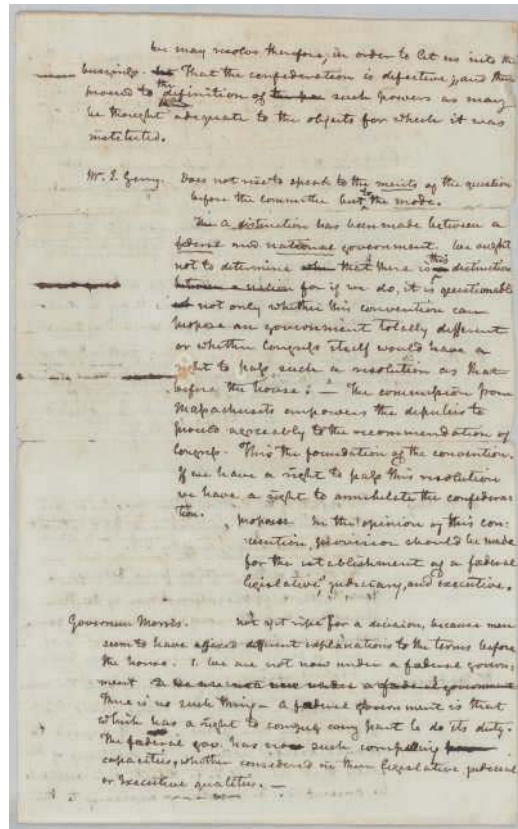 We may resolve therefore, in order to let us into the
business. That the confederation is defective; and then
proceed to the definition of such powers as may
be thought adequate to the objects for which it was
instituted.
Mr. E. Gerry. Does not rise to speak to the merits of the question
before the committee but to the mode.
A distinction has been made between a
federal and national government. We ought
not to determine that there is this distinction
for if we do, it is questionable
not only whether this convention can
propose an government totally different
or whether Congress itself would have a
right to pass such a resolution as that
before the house. — The commission from
Massachusets empowers the deputies to
proceed agreeably to the recommendation of
Congress. This the foundation of the convention.
If we have a right to pass this resolution
we have a right to annihilate the confedera-
tion.
proposes In the opinion of this con-
vention, provision should be made
for the establishment of a federal
legislative, judiciary, and executive.
Governeur Morris. Not yet ripe for a decision, because men
seem to have affixed different explanations to the terms before
the house. 1. We are not now under a fœderal govern-
ment 2. We are not now under a fœderal government
There is no such thing. A fœderal government is that
which has a right to compel every part to do its duty.
The fœderal gov. has no such compelling
capacities, whether considered in their legislative, judicial
or Executive qualities. —